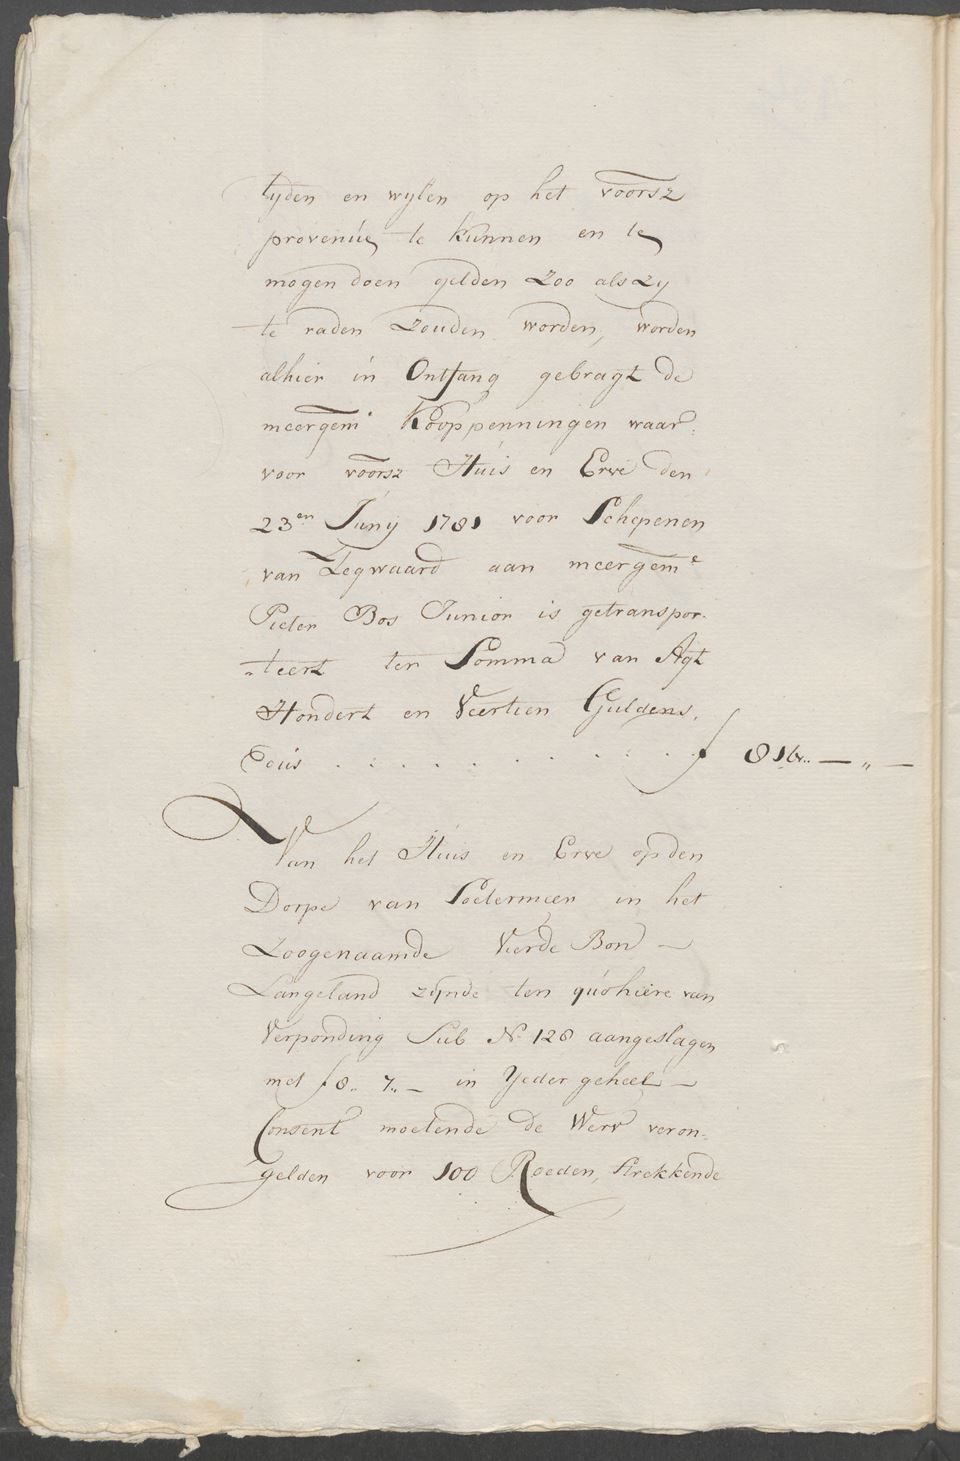 tyden en wylen op het voorsz
provenúe te kunnen en te
mogen doen gelden zoo als zy
te raden zouden worden, worden
alhier in Ontfang gebragt de
meergem. Kooppenningen waar:
voor voorsz Húis en Erve den
23en Júny 1781 voor Schepenen
van Zegwaard aan meergeme
Pieter Bos Junior is getranspor:
:teert ter Somma van Agt
Hondert en Veertien Guldens,
Dús . . . . . . . . . . f 814.. — „ —
Van het Húis en Erve op den
Dorpe van Soetermeer in het
Zoogenaamde Vierde Bon —
Langeland zijnde ten qúohiere van
Verponding Sub No 128 aangeslagen
met f 8.. 7.. — in Yeder geheel —
Consent moetende de Werv veron:
gelden voor 100 Roeden, strekkende